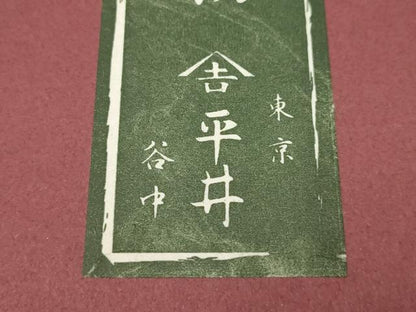 東京
𠮷平井
谷中